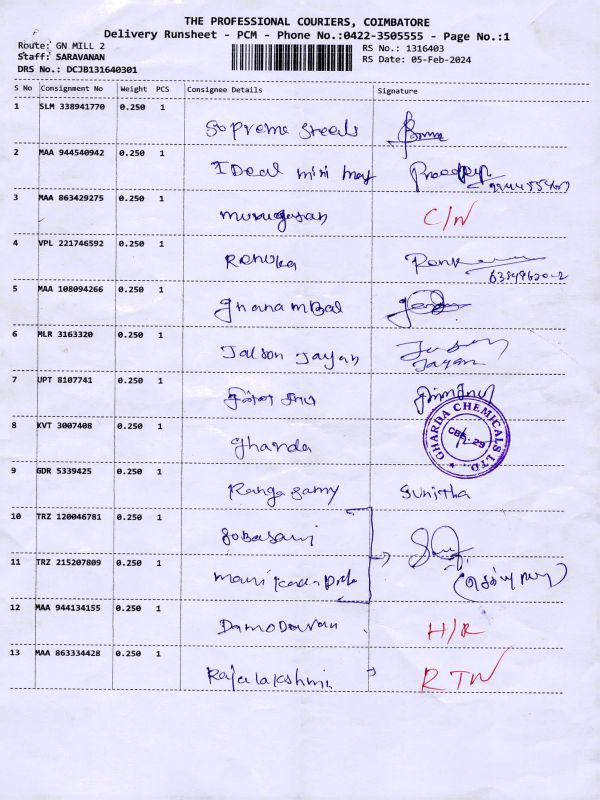 THE PROFESSIONAL COURIERS, COIMBATORE
Delivery Runsheet - PCM - Phone No.:0422-3505555 - Page No.:1
Route: GN MILL 2
Staff: SARAVANAN
DRS No.: DCJB131640301
RS No.: 1316403
RS Date: 05-Feb-2024
S No Consignment No Weight PCS Consignee Details Signature
1 SLM 338941770 0.250 1
Supreme steels
2 MAA 944540942 0.250 1
IDeal mini
3 MAA 863429275 0.250 1
murugesan C/N
4 VPL 221746592 0.250 1
Renuka
5 MAA 108094266 0.250 1
ghanamBal
6 MLR 3163320 0.250 1
Jalson Jayan
Jayan
7 UPT 8107741 0.250 1
8 KVT 3007408 0.250 1
gharda
GHARDA CHEMICALS LTD.
9 GDR 5339425 0.250 1
Ranga samy Sunitha
10 TRZ 120046781 0.250 1
11 TRZ 215207809 0.250 1
12 MAA 944134155 0.250 1
Damodaran H/R
13 MAA 863334428 0.250 1
Rajalakshmi RTN